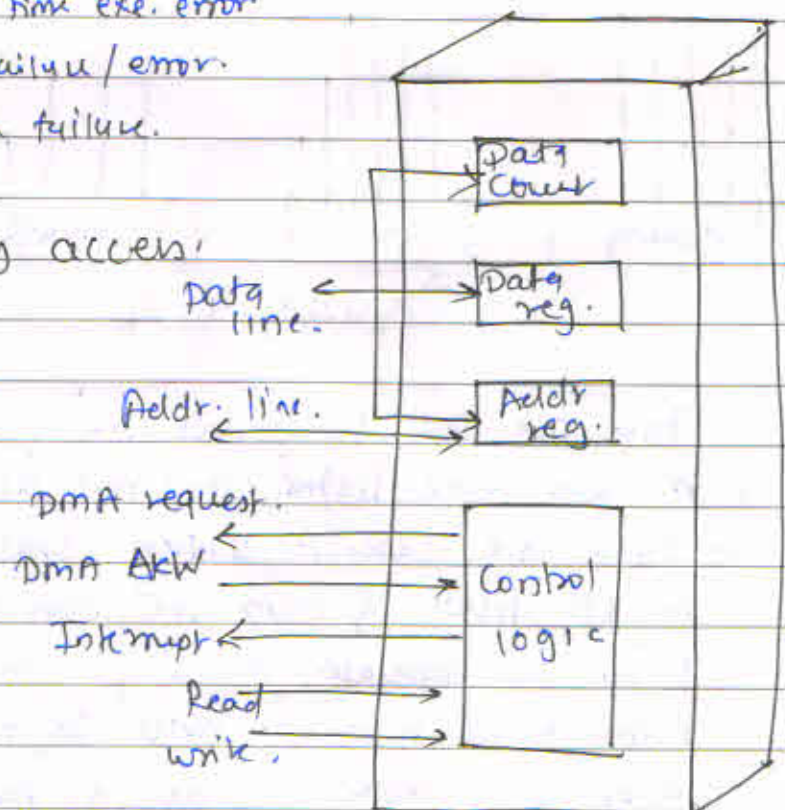 time exe. error
failure / error.
failure.
access:
Data
Count
Data
line.
Data
reg.
Addr. line.
Addr
reg.
DMA request.
DMA AKW
Control
logic
Interrupt
Read
write.